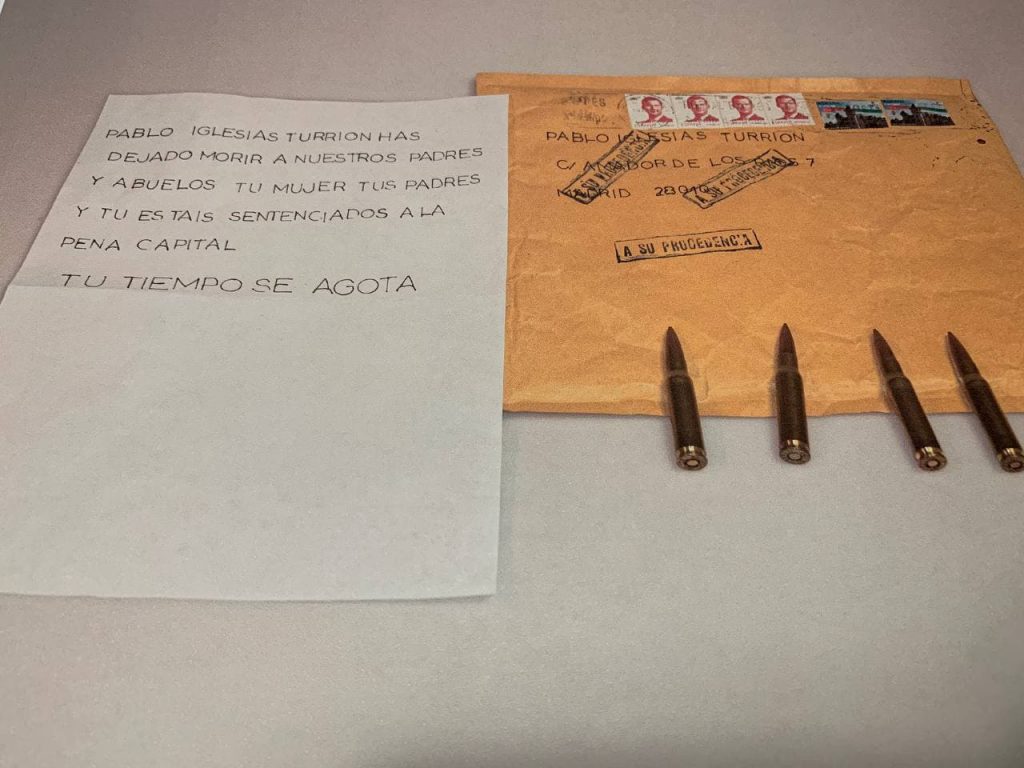 PABLO IGLESIAS TURRION HAS
DEJADO MORIR A NUESTROS PADRES
Y ABUELOS TU MUJER TUS PADRES
Y TU ESTAIS SENTENCIADOS A LA
PENA CAPITAL
TU TIEMPO SE AGOTA
PABLO IGLESIAS TURRION
C/ DE LOS 7
MADRID 28010
A SU PROCEDENCIA
A SU PROCEDENCIA
A SU PROCEDENCIA